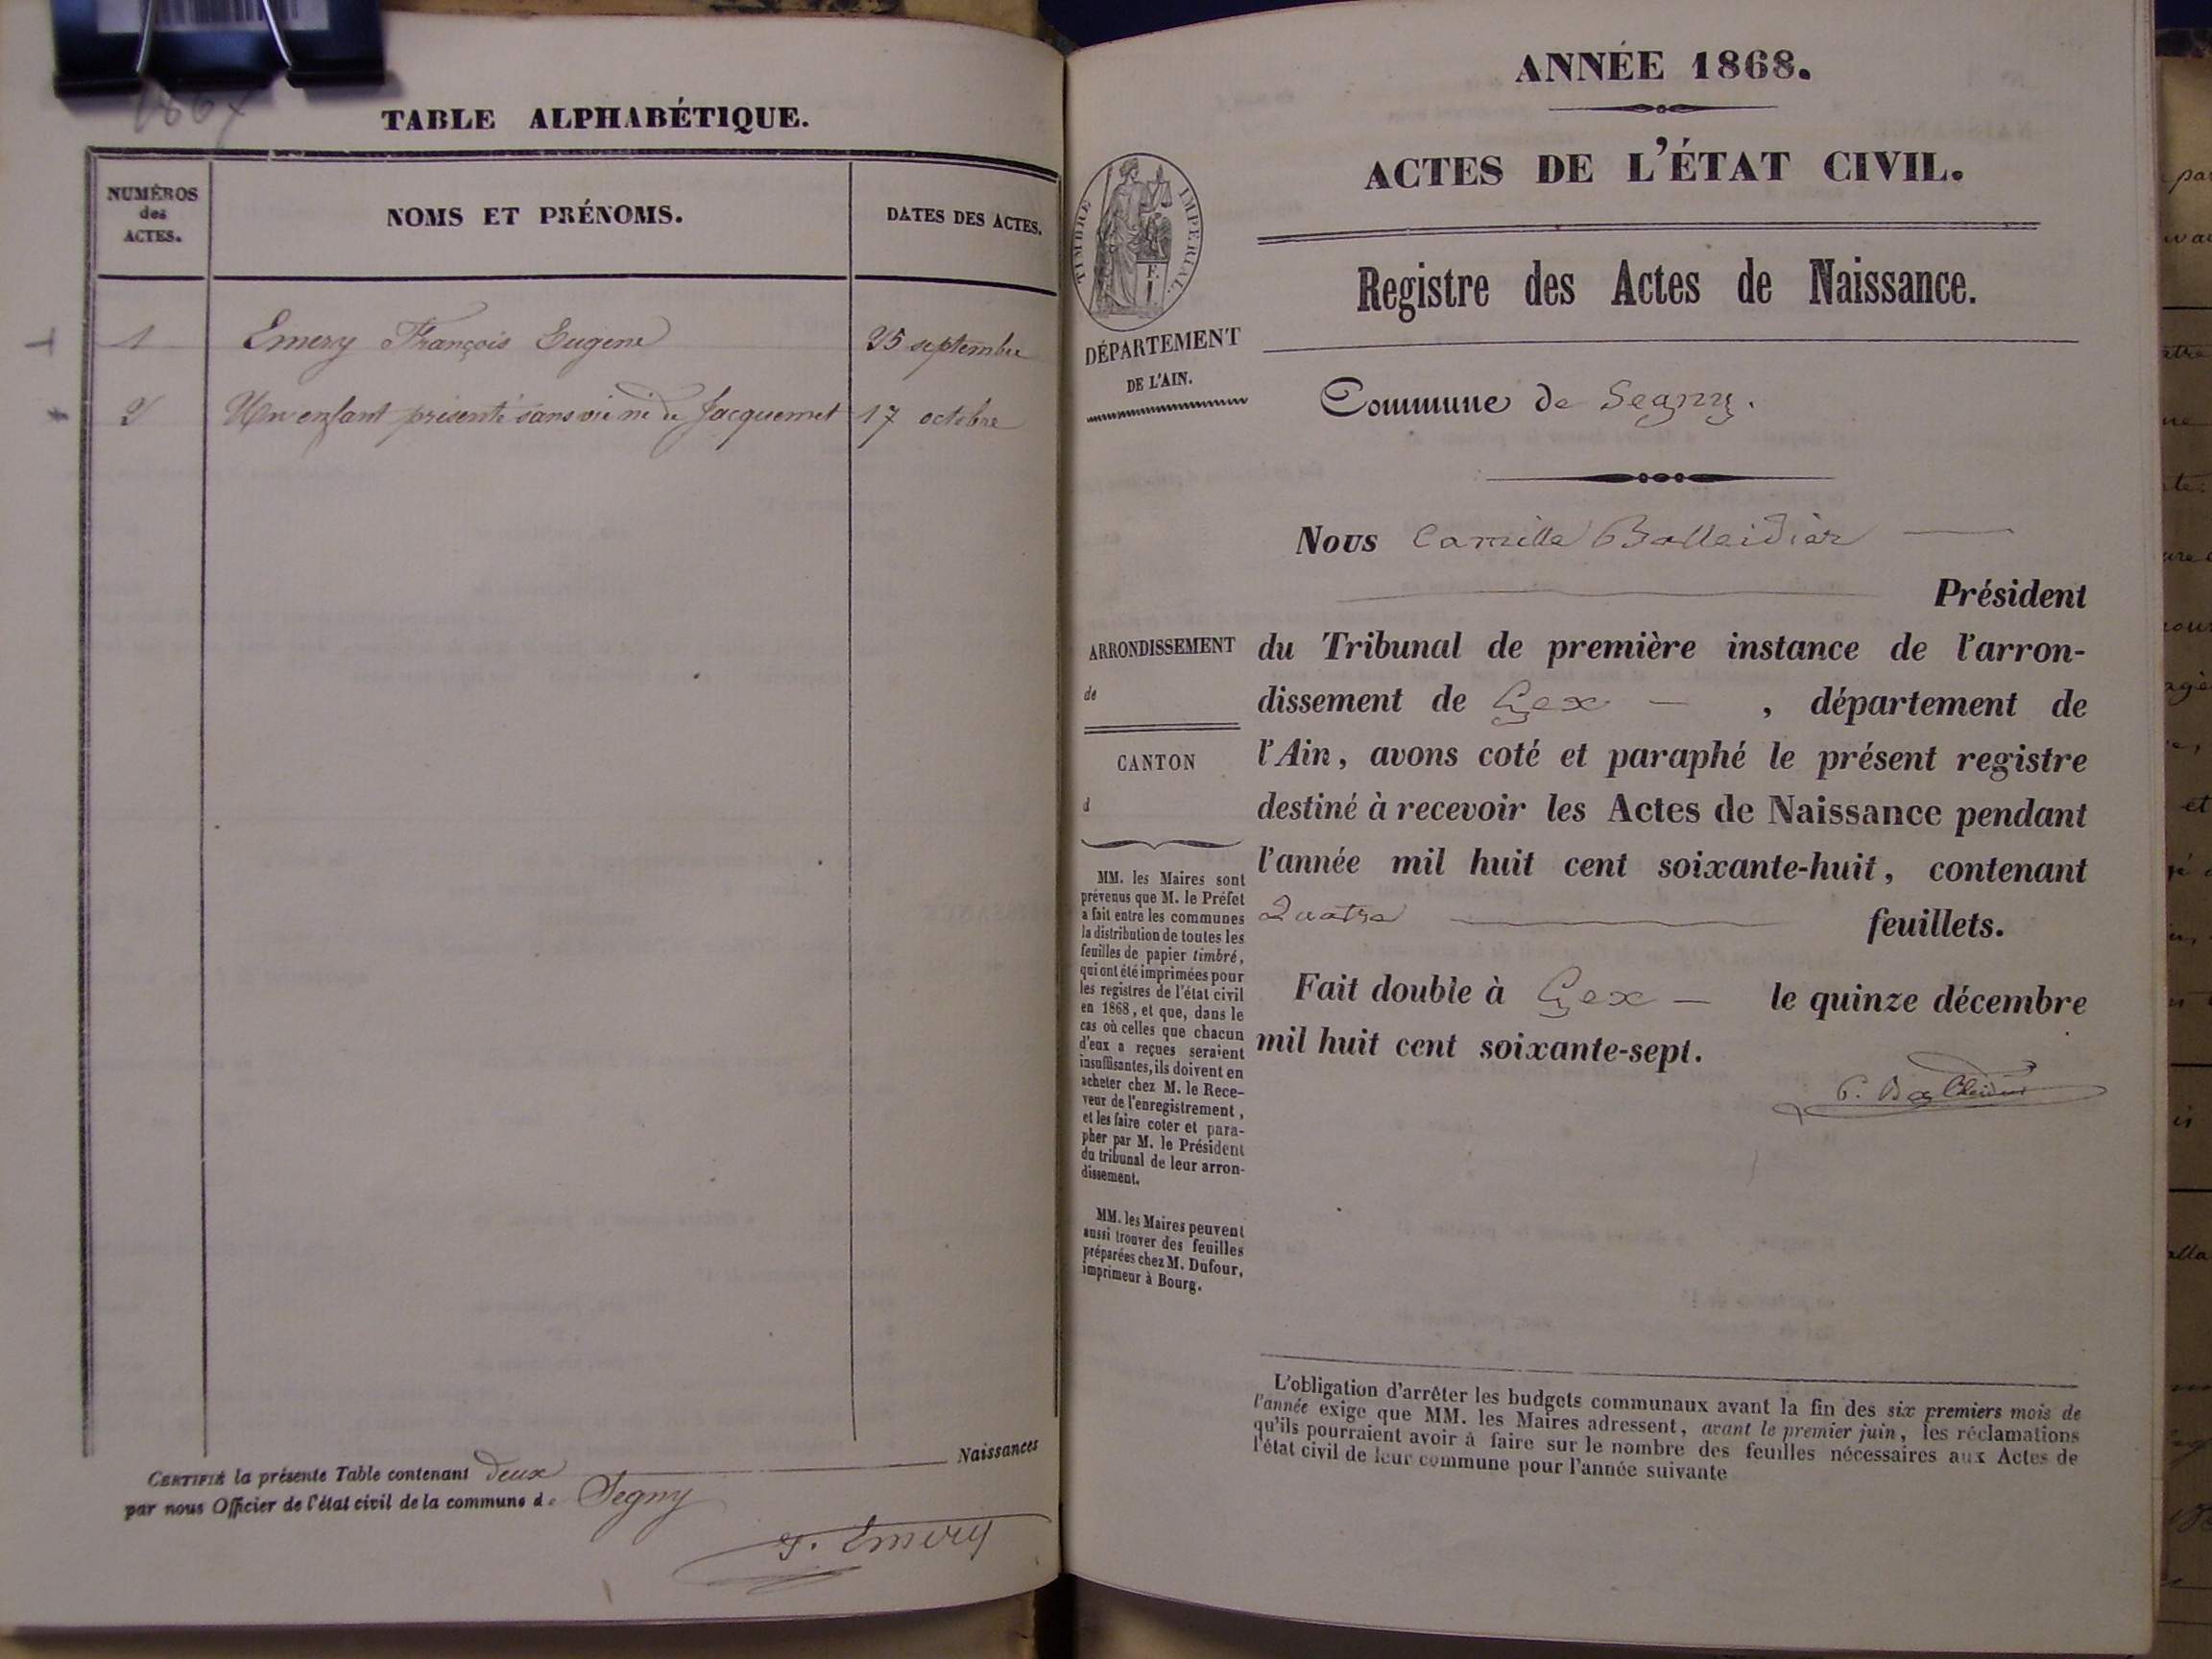 1867
TABLE ALPHABÉTIQUE.
NUMÉROS
des
ACTES.
NOMS ET PRÉNOMS.
DATES DES ACTES.
1 Emery François Eugène 25 septembre
2 Un enfant présenté sans vie né de Jacquemet 17 octobre
CERTIFIÉ la présente Table contenant deux Naissances
par nous Officier de l'état civil de la commune de Segny
F. Emery
ANNÉE 1868.
ACTES DE L'ÉTAT CIVIL.
TIMBRE IMPERIAL
Registre des Actes de Naissance.
DÉPARTEMENT
DE L'AIN.
Commune de Segny.
Nous Camille Balleidier
Président
ARRONDISSEMENT
de
CANTON
d
du Tribunal de première instance de l'arron-
dissement de Gex , département de
l'Ain, avons coté et paraphé le présent registre
destiné à recevoir les Actes de Naissance pendant
l'année mil huit cent soixante-huit, contenant
Quatre feuillets.
Fait double à Gex le quinze décembre
mil huit cent soixante-sept.
C. Balleidier
MM. les Maires sont
prévenus que M. le Préfet
a fait entre les communes
la distribution de toutes les
feuilles de papier timbré,
qui ont été imprimées pour
les registres de l'état civil
en 1868, et que, dans le
cas où celles que chacun
d'eux a reçues seraient
insuffisantes, ils doivent en
acheter chez M. le Rece-
veur de l'enregistrement,
et les faire coter et para-
pher par M. le Président
du tribunal de leur arron-
dissement.
MM. les Maires peuvent
aussi trouver des feuilles
préparées chez M. Dufour,
imprimeur à Bourg.
L'obligation d'arrêter les budgets communaux avant la fin des six premiers mois de
l'année exige que MM. les Maires adressent, avant le premier juin, les réclamations
qu'ils pourraient avoir à faire sur le nombre des feuilles nécessaires aux Actes de
l'état civil de leur commune pour l'année suivante